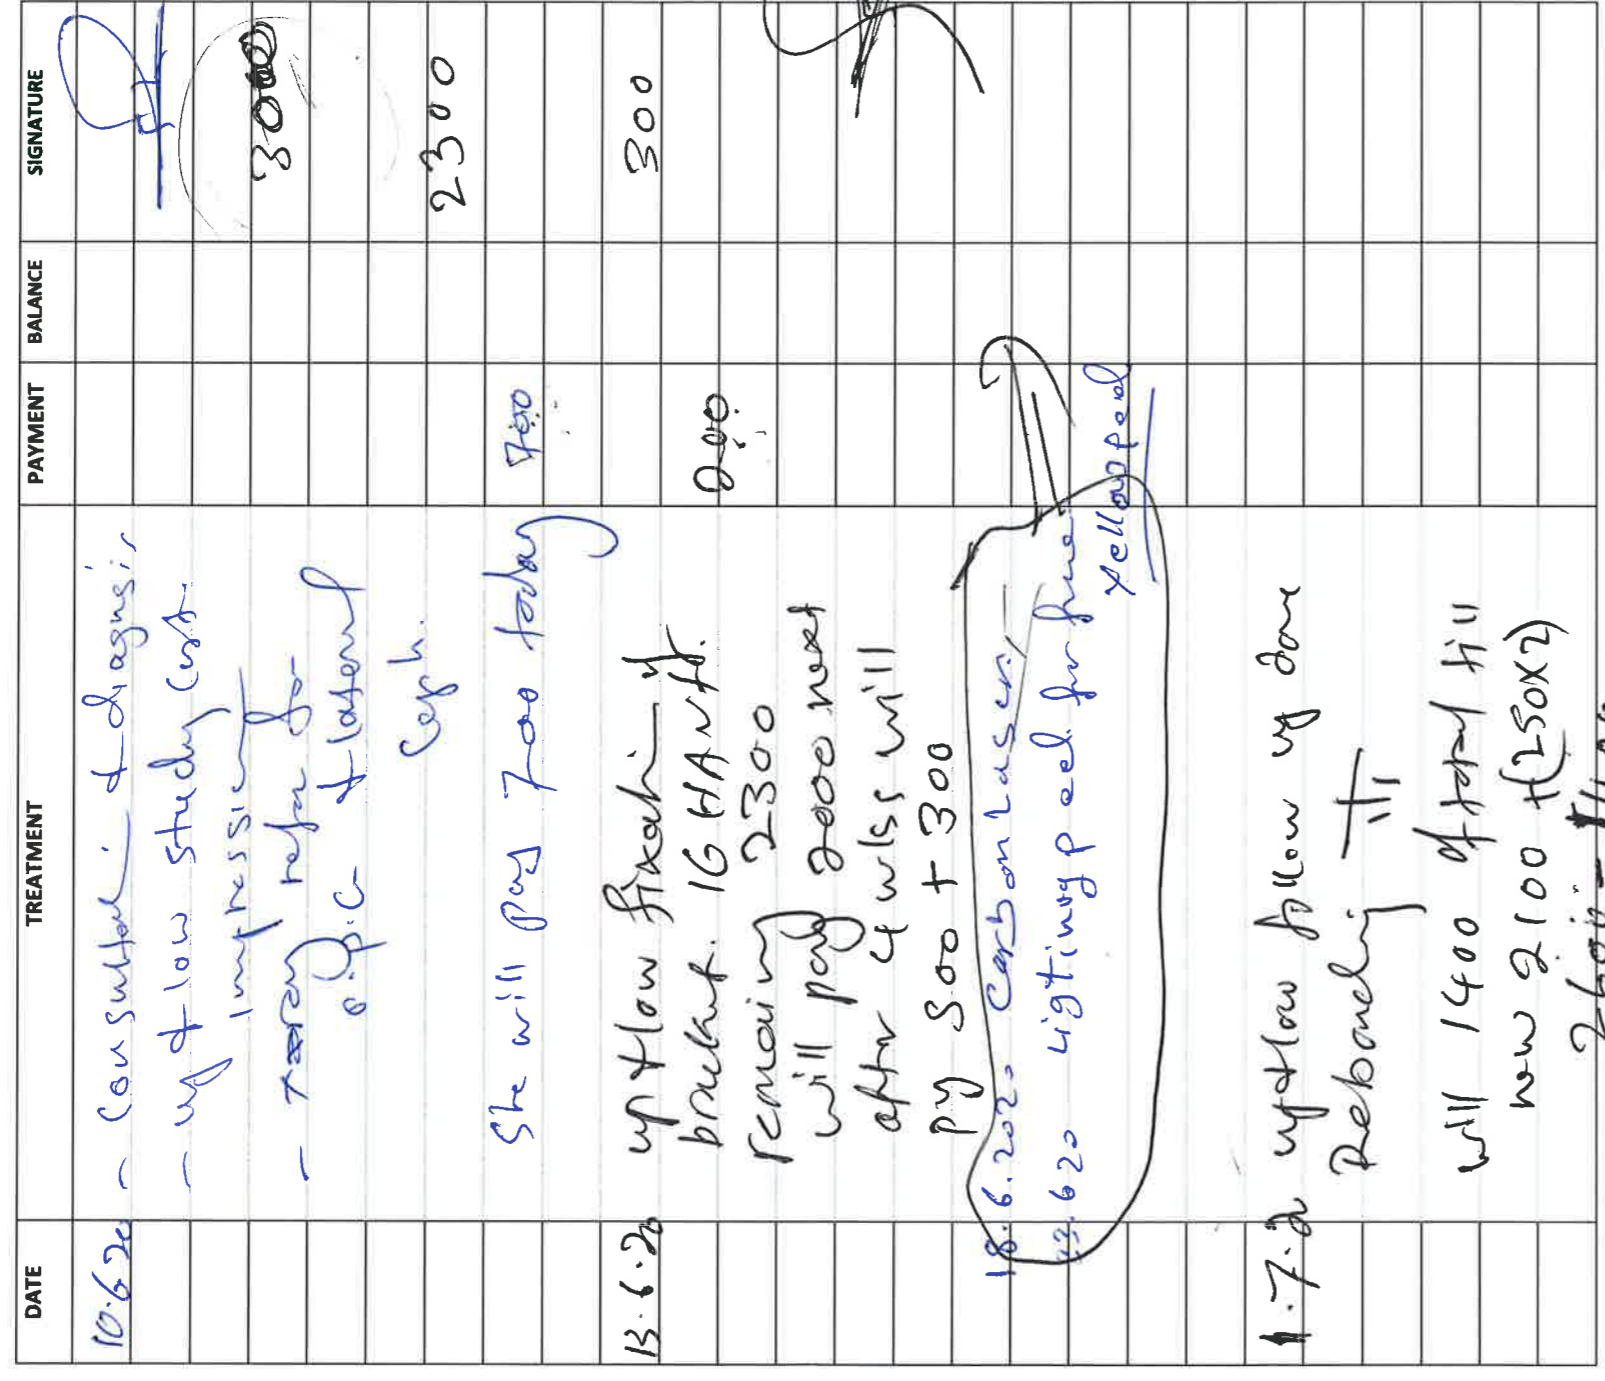 DATE TREATMENT PAYMENT BALANCE SIGNATURE
10.6.20 - Consultati + diagnosis
- up + low study cast
impression
- xray refer for 3000
O.P.G + lateral
Ceph.
2300
She will pay 700 today 700
13.6.20 up + low fixation of 300
bracket. 16 HANT.
200
remaining 2300
will pay 2000 next
after 4 wks will
py 300 + 300
18.6.2020 Carbon Laser
23.620 Ligtinyg peel for free
Yellow peel
1.7.2 up + low follow up done
Rebonding
will 1400 of total till
now 2100 + (250x2)